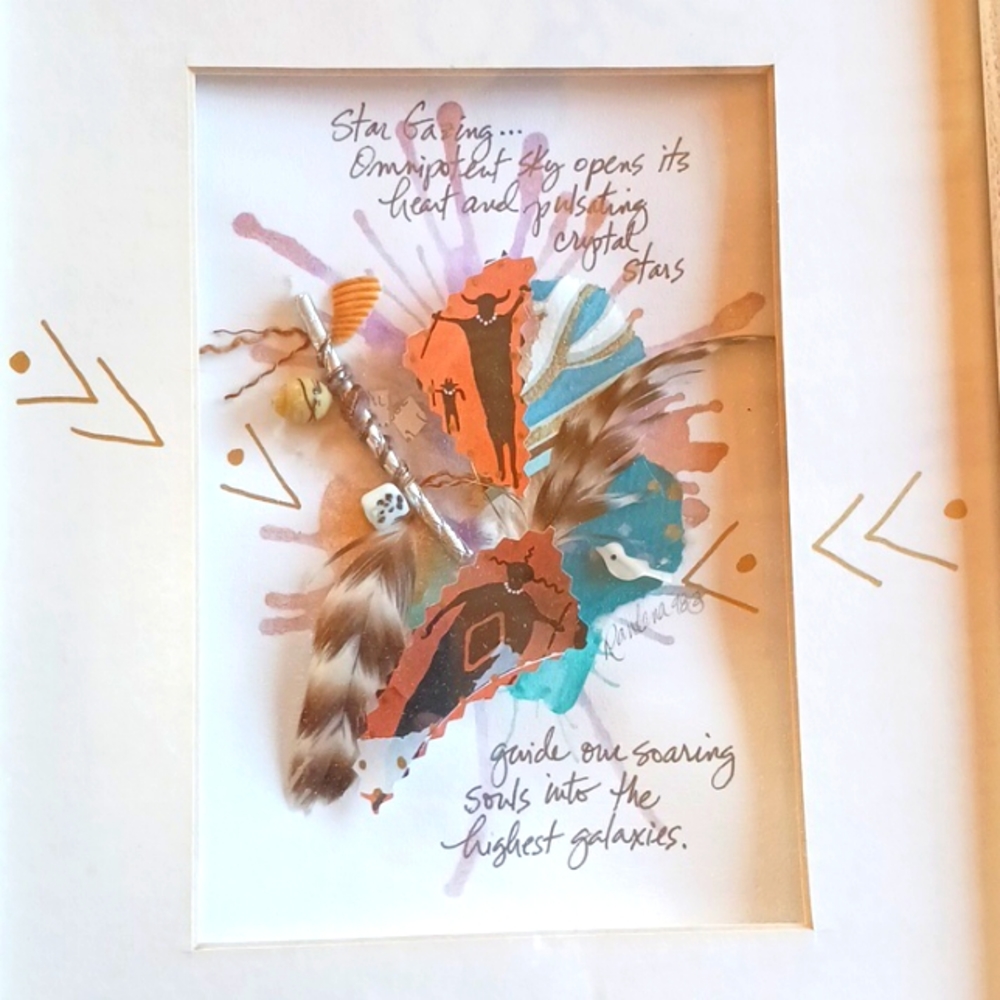 Star Gazing...
Omnipotent sky opens its
heart and pulsating
cryptal
stars
guide our soaring
souls into the
highest galaxies.